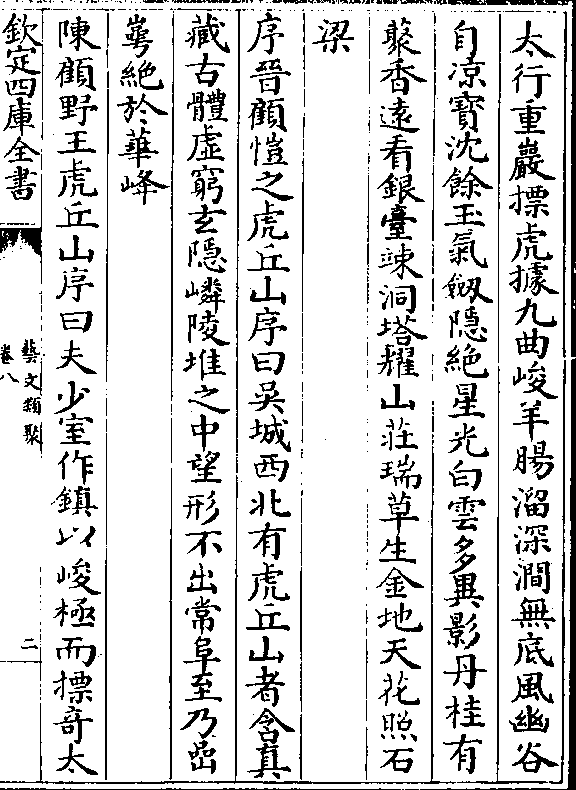 太行重巖摽虎據九曲峻羊腸溜深澗無底風幽谷
自凉寶沈餘玉氣劔隱絶星光白雲多異影丹桂有
藂香遠看銀臺竦洞塔耀山莊瑞草生金地天花照石
梁
序晉顧愷之虎丘山序曰吳城西北有虎丘山者含真
藏古體虛窮玄隱嶙陵堆之中望形不出常阜至乃嵒
崿絶於華峰
陳顧野王虎丘山序曰夫少室作鎮以峻極而摽竒太
欽定四庫全書
藝文類聚
卷八
二